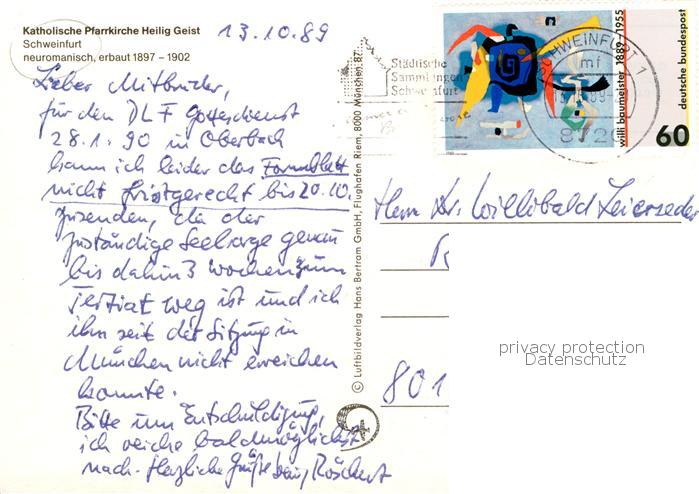 Katholische Pfarrkirche Heilig Geist
Schweinfurt
neuromanisch, erbaut 1897 – 1902
13.10.89
Lieber Mitbruder,
für den DLF Gottesdienst
28.1.90 in Oberbach
kann ich leider das Formblatt
nicht fristgerecht bis 20.10.
zusenden, da der
zuständige Seelsorge genau
bis dahin 3 Wochen zum
Tertiat weg ist und ich
ihn seit der Sitzung in
München nicht erreichen
konnte.
Bitte um Entschuldigung,
ich reiche baldmöglichst
nach. Herzliche Grüße
© Luftbildverlag Hans Bertram GmbH, Flughafen Riem, 8000 München 87
Städtische
Sammlungen
Schweinfurt
SCHWEINFURT 1
mf
8720
willi baumeister 1889-1955
deutsche bundespost
60
Herrn Dr. Willibald Leierseder
801
privacy protection
Datenschutz